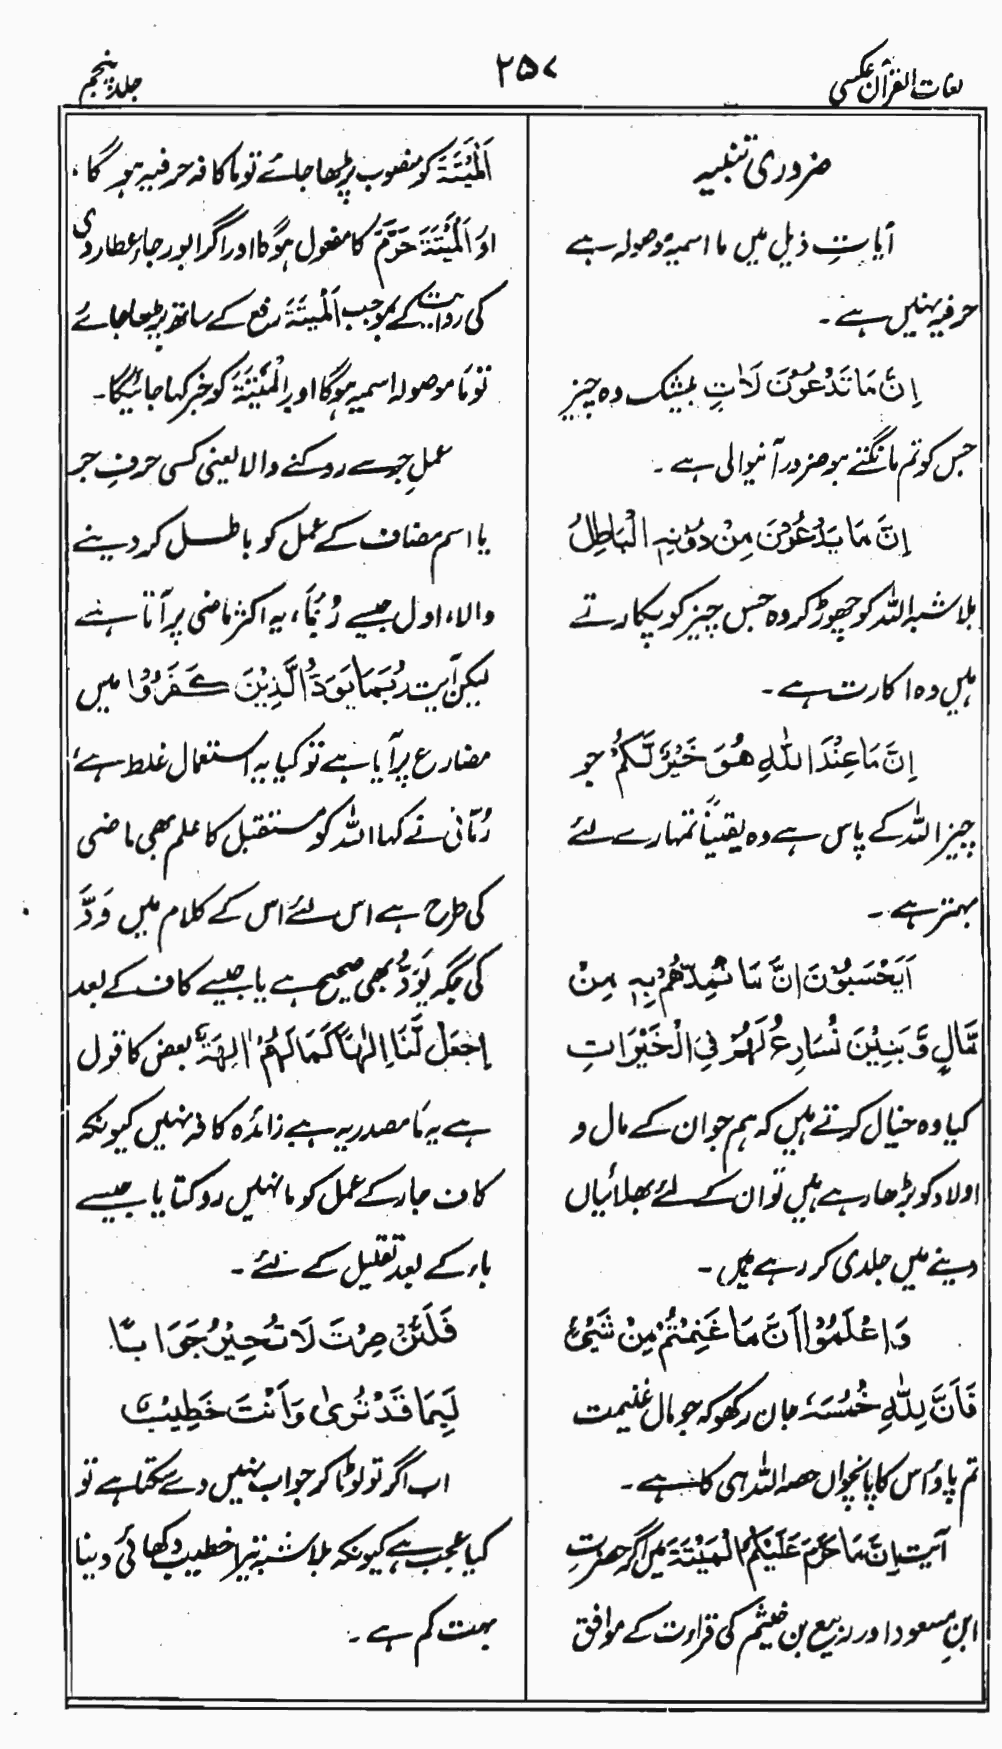 لغات القرآن عکسی
۲۵۷
جلد پنجم
ضروری تنبیہ
آیاتِ ذیل میں ما اسمیہ موصولہ ہے
حرفیہ نہیں ہے۔
اِنَّ مَا تَدْعُوْنَ لَاٰتٍ بیشک وہ چیز
جس کو تم مانگتے ہو ضرور آنیوالی ہے۔
اِنَّ مَا یَدْعُوْنَ مِنْ دُوْنِہٖ الْبَاطِلُ
بلا شبہ اللہ کو چھوڑ کر وہ جس چیز کو پکارتے
ہیں وہ اکارت ہے۔
اِنَّ مَا عِنْدَ اللّٰہِ ھُوَ خَیْرٌ لَّکُمْ جو
چیز اللہ کے پاس ہے وہ یقیناً تمہارے لئے
بہتر ہے۔
اَیَحْسَبُوْنَ اِنَّ مَا نُمِدُّھُمْ بِہٖ مِنْ
مَّالٍ وَّ بَنِیْنَ نُسَارِعُ لَھُمْ فِی الْخَیْرَاتِ
کیا وہ خیال کرتے ہیں کہ ہم جو ان کے مال و
اولاد کو بڑھا رہے ہیں تو ان کے لئے بھلائیاں
دینے میں جلدی کر رہے ہیں۔
وَاعْلَمُوْا اَنَّ مَا غَنِمْتُمْ مِنْ شَیْءٍ
فَاَنَّ لِلّٰہِ خُمُسَہٗ جان رکھو کہ جو مال غنیمت
تم پاؤ اس کا پانچواں حصہ اللہ ہی کا ہے۔
آیت اِنَّ مَا حَرَّمَ عَلَیْکُمُ الْمَیْتَۃَ میں اگر حضرت
ابنِ مسعود اور ربیع بن خیثم کی قراءت کے موافق
اَلْمَیْتَۃَ کو منصوب پڑھا جائے تو ما کافہ حرفیہ ہو گا،
اور اَلْمَیْتَۃَ حَرَّمَ کا مفعول ہوگا اور اگر ابو رجاء عطاردی
کی روایت کے بموجب اَلْمَیْتَۃَ رفع کے ساتھ پڑھا جائے
تو مَا موصولہ اسمیہ ہوگا اور اِلْمَیْتَۃَ کو خبر کہا جائیگا۔
عملِ جر سے روکنے والا یعنی کسی حرفِ جر
یا اسم مضاف کے عمل کو باطل کر دینے
والا، اول جیسے رُبَّمَا، یہ اکثر ماضی پر آتا ہے
لیکن آیت رُبَمَا یَوَدُّ الَّذِیْنَ کَفَرُوْا میں
مضارع پر آیا ہے تو کیا یہ استعمال غلط ہے؟
رُمّانی نے کہا اللہ کو مستقبل کا علم بھی ماضی
کی طرح ہے اس لئے اس کے کلام میں وَدَّ
کی جگہ یَوَدُّ بھی صحیح ہے یا جیسے کاف کے بعد
اِجْعَلْ لَّنَا اِلٰھًا کَمَا لَھُمْ اٰلِھَۃٌ بعض کا قول
ہے یہ مَا مصدریہ ہے زائدہ کافہ نہیں کیونکہ
کاف جار کے عمل کو ما نہیں روکتا یا جیسے
باء کے بعد تقلیل کے لئے۔
فَلَئِنْ صِرْتَ لَا تُحِیْرُ جَوَابًا
لَبِمَا قَدْ تُریٰ وَاَنْتَ خَطِیْبٌ
اب اگر تو لوٹا کر جواب نہیں دے سکتا ہے تو
کیا عجب ہے کیونکہ بلا شبہ تیرا خطیب دکھائی دینا
بہت کم ہے۔